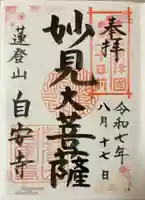 奉拝
令和七年
八月十七日
妙見大菩薩
蓮登山
自安寺